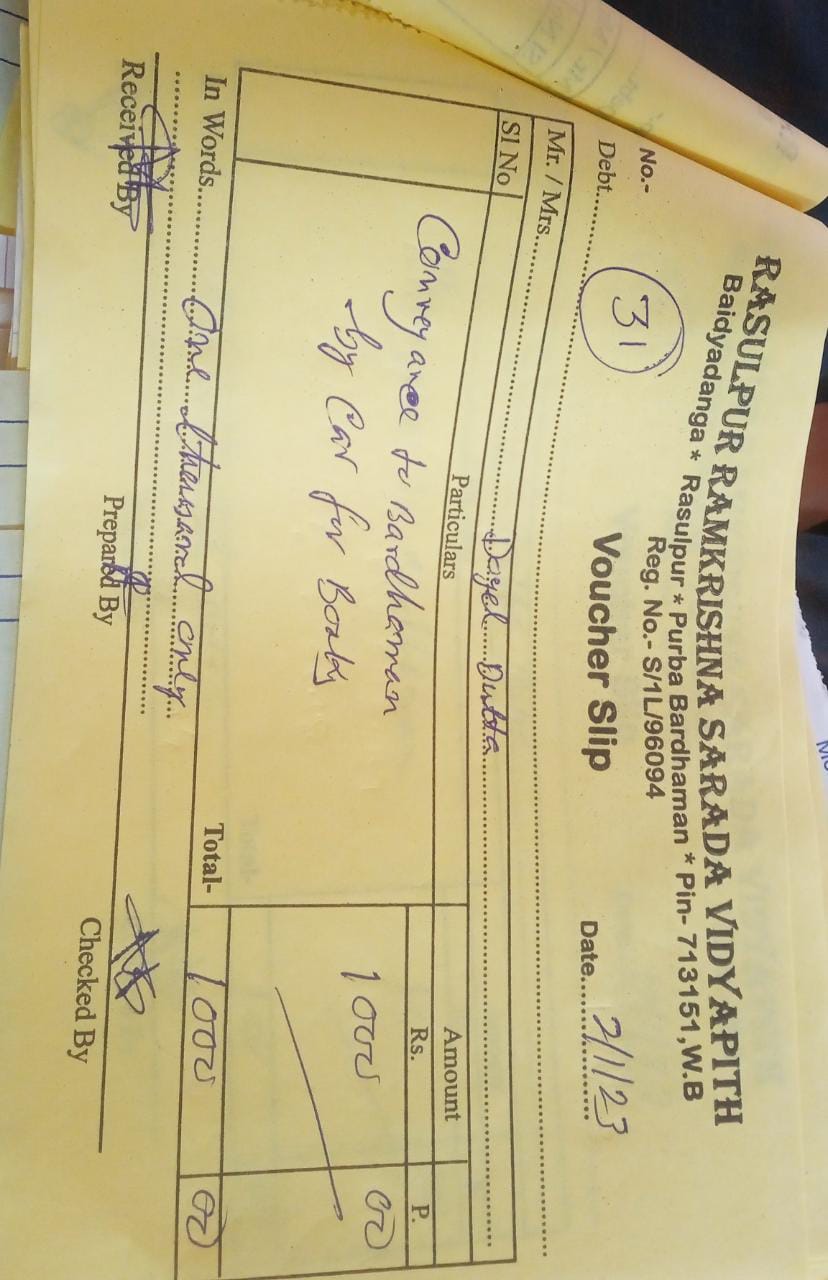 RASULPUR RAMKRISHNA SARADA VIDYAPITH
Baidyadanga * Rasulpur * Purba Bardhaman * Pin- 713151,W.B
Reg. No.- S/1L/96094
No.- 31
Voucher Slip
Debt.....
Date..... /1/23
Mr. / Mrs..... Dutta
Sl No Particulars Amount
Rs. P.
Conveyance to Bardhaman 1000 00
by Car for Books
Total- 1000 00
In Words..... One thousand only
Received By Prepared By Checked By